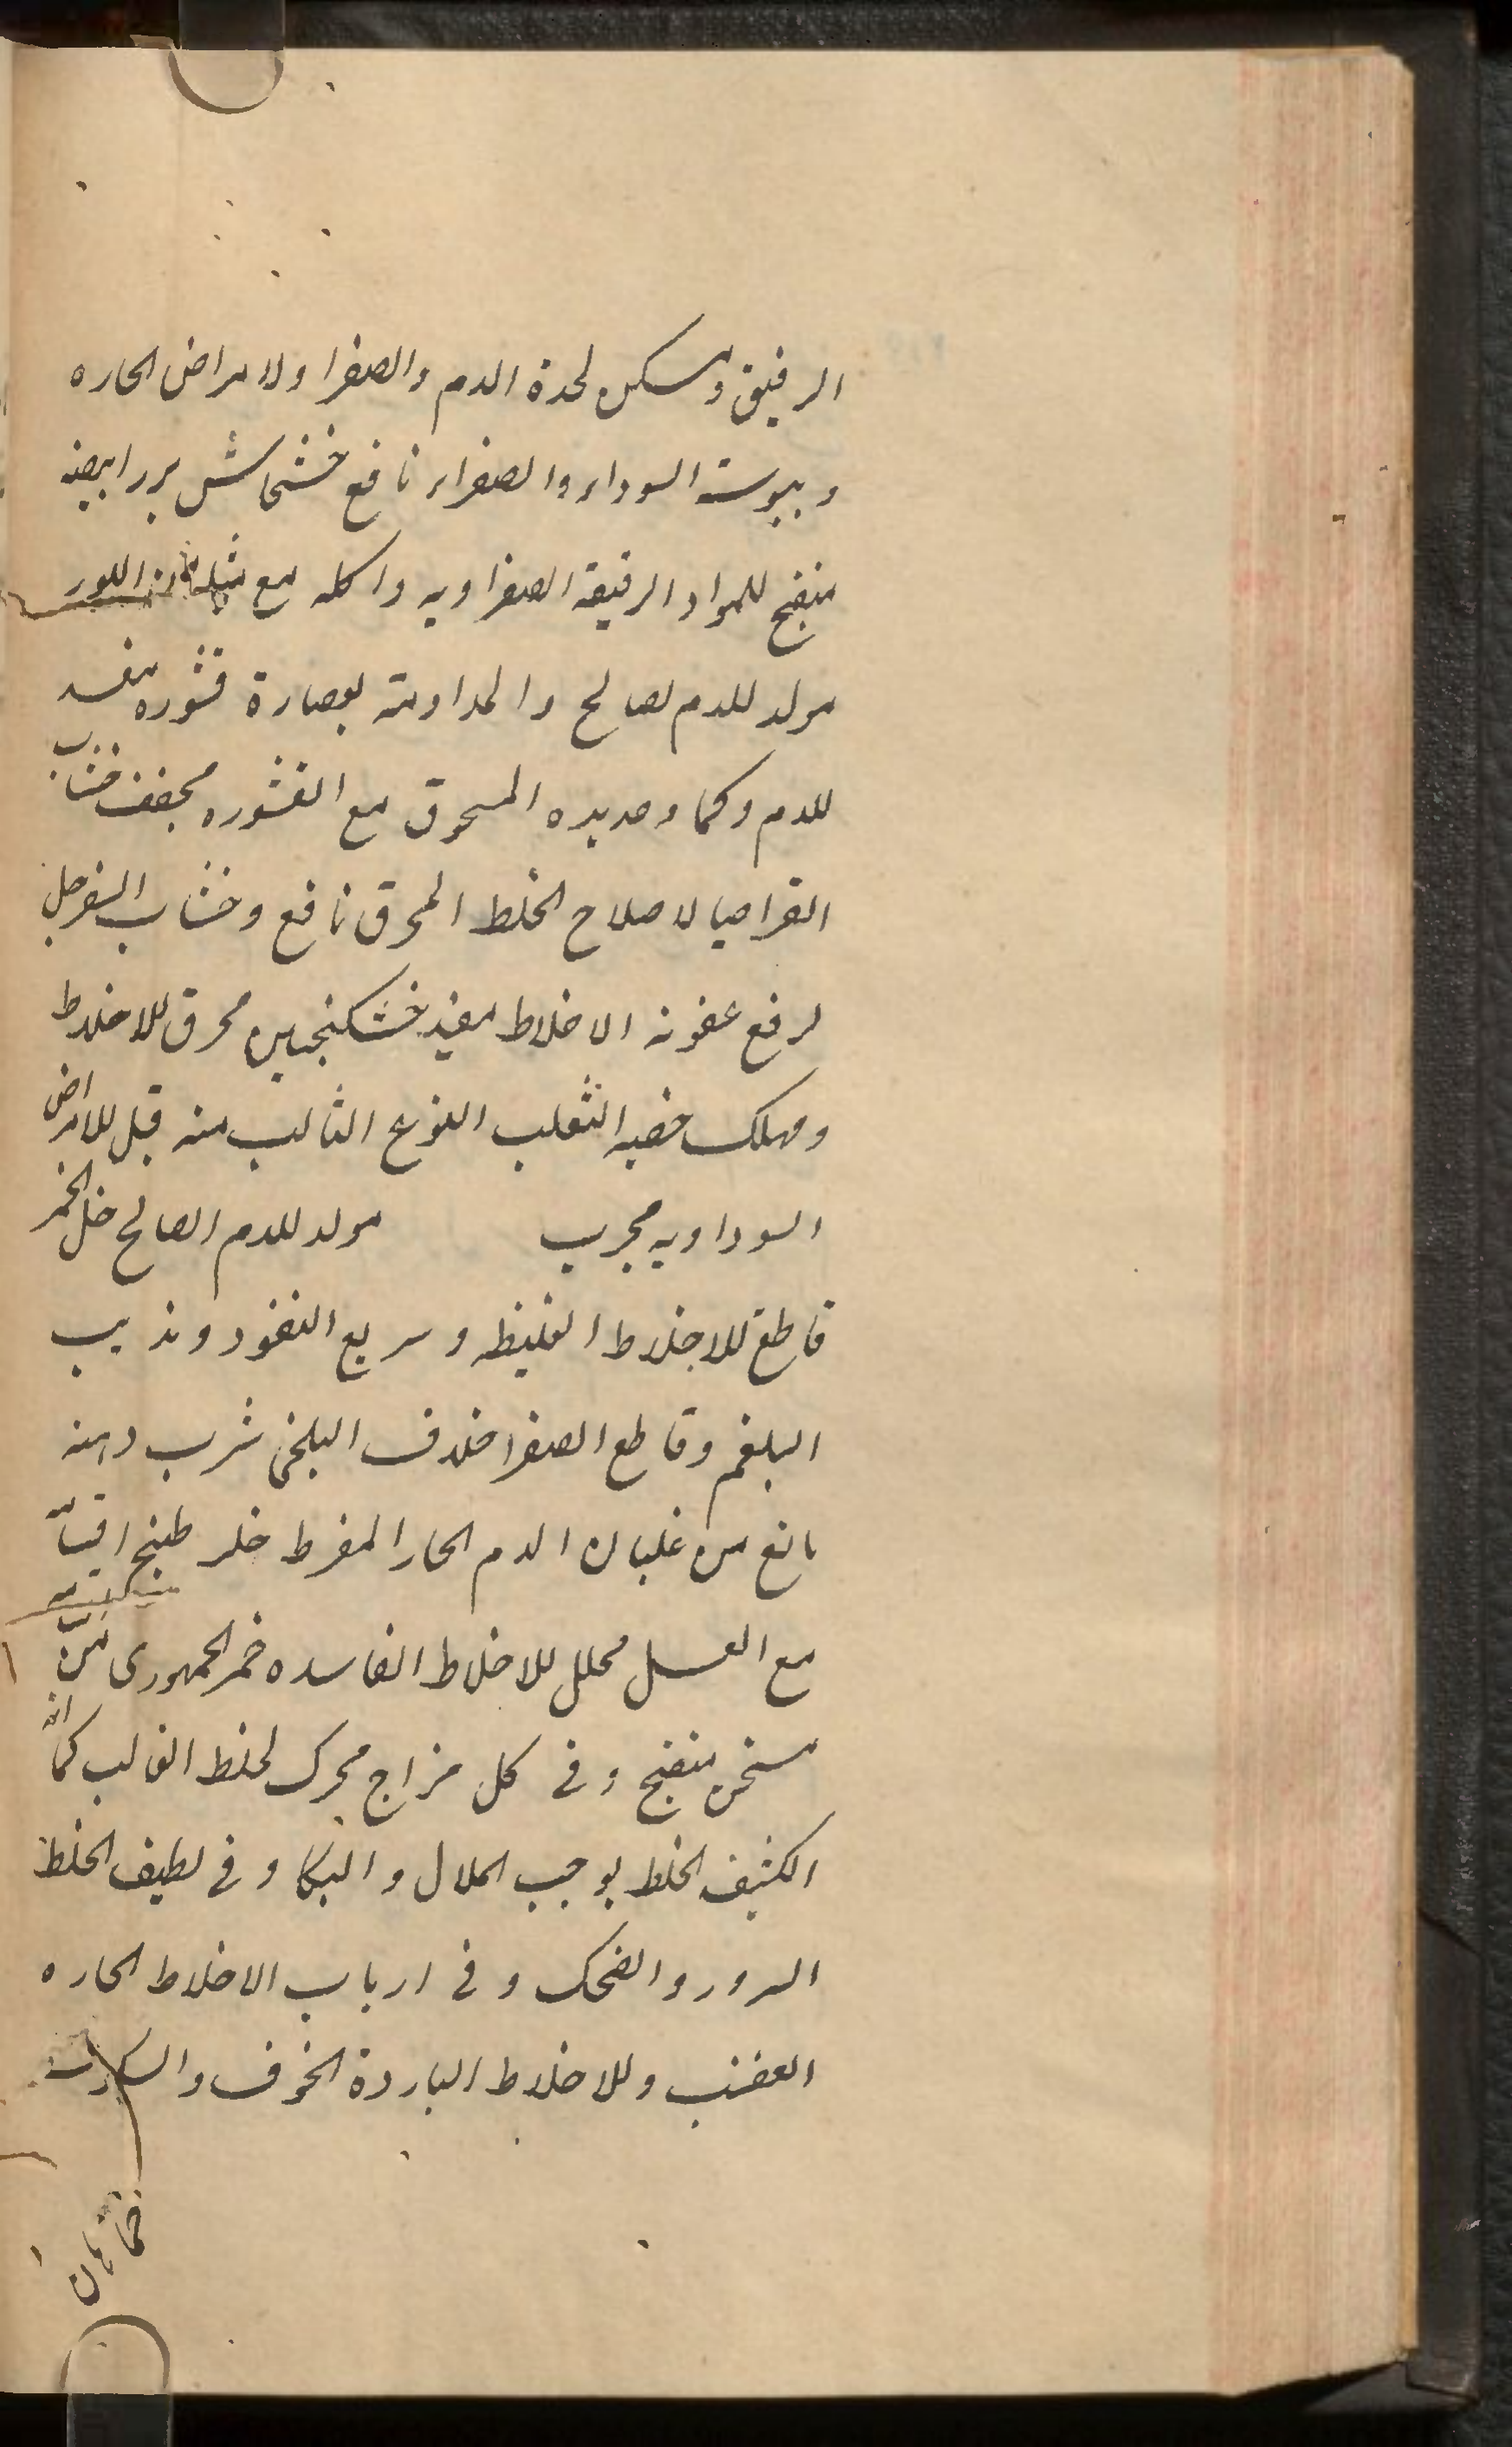 الرقيق ومسكن لحدة الدم والصفرا ولامراض الحاره
ويبوسة السوداء والصفراء نافع خشخاش بزر ابيضه
منضج للمواد الرقيقة الصفراويه واكله مع مثله من اللوز
مولد للدم لصالح والمداومة بعصارة قشوره مفسد
للدم وكماد جديده المسحوق مع القشوره مجفف خشاب
القراصيا لاصلاح الخلط المحرق نافع وخشاب السفرجل
لرفع عفونه الاخلاط مفيد خشكنجبين محرق للاخلاط
ومهلك خصيه الثعلب النوع الثالث منه قبل للامراض
السوداويه مجرب مولد للدم الصالح خل الخمر
قاطع للاخلاط الغليظه وسريع النفوذ ومذيب
البلغم وقاطع الصفرا خلاف البلخى شرب دهنه
مانع من غليان الدم الحار المفرط خلر طبخ
مع العسل محلل للاخلاط الفاسده خمر الجمهورى
مسخن منضج وفى كل مزاج محرك لخلط الغالب كما انه
الكثيف الخلط يوجب الملال والبكا وفى لطيف الخلط
السرور والضحك وفى ارباب الاخلاط الحاره
الغضب وللاخلاط الباردة الخوف والسكوت
خماهان